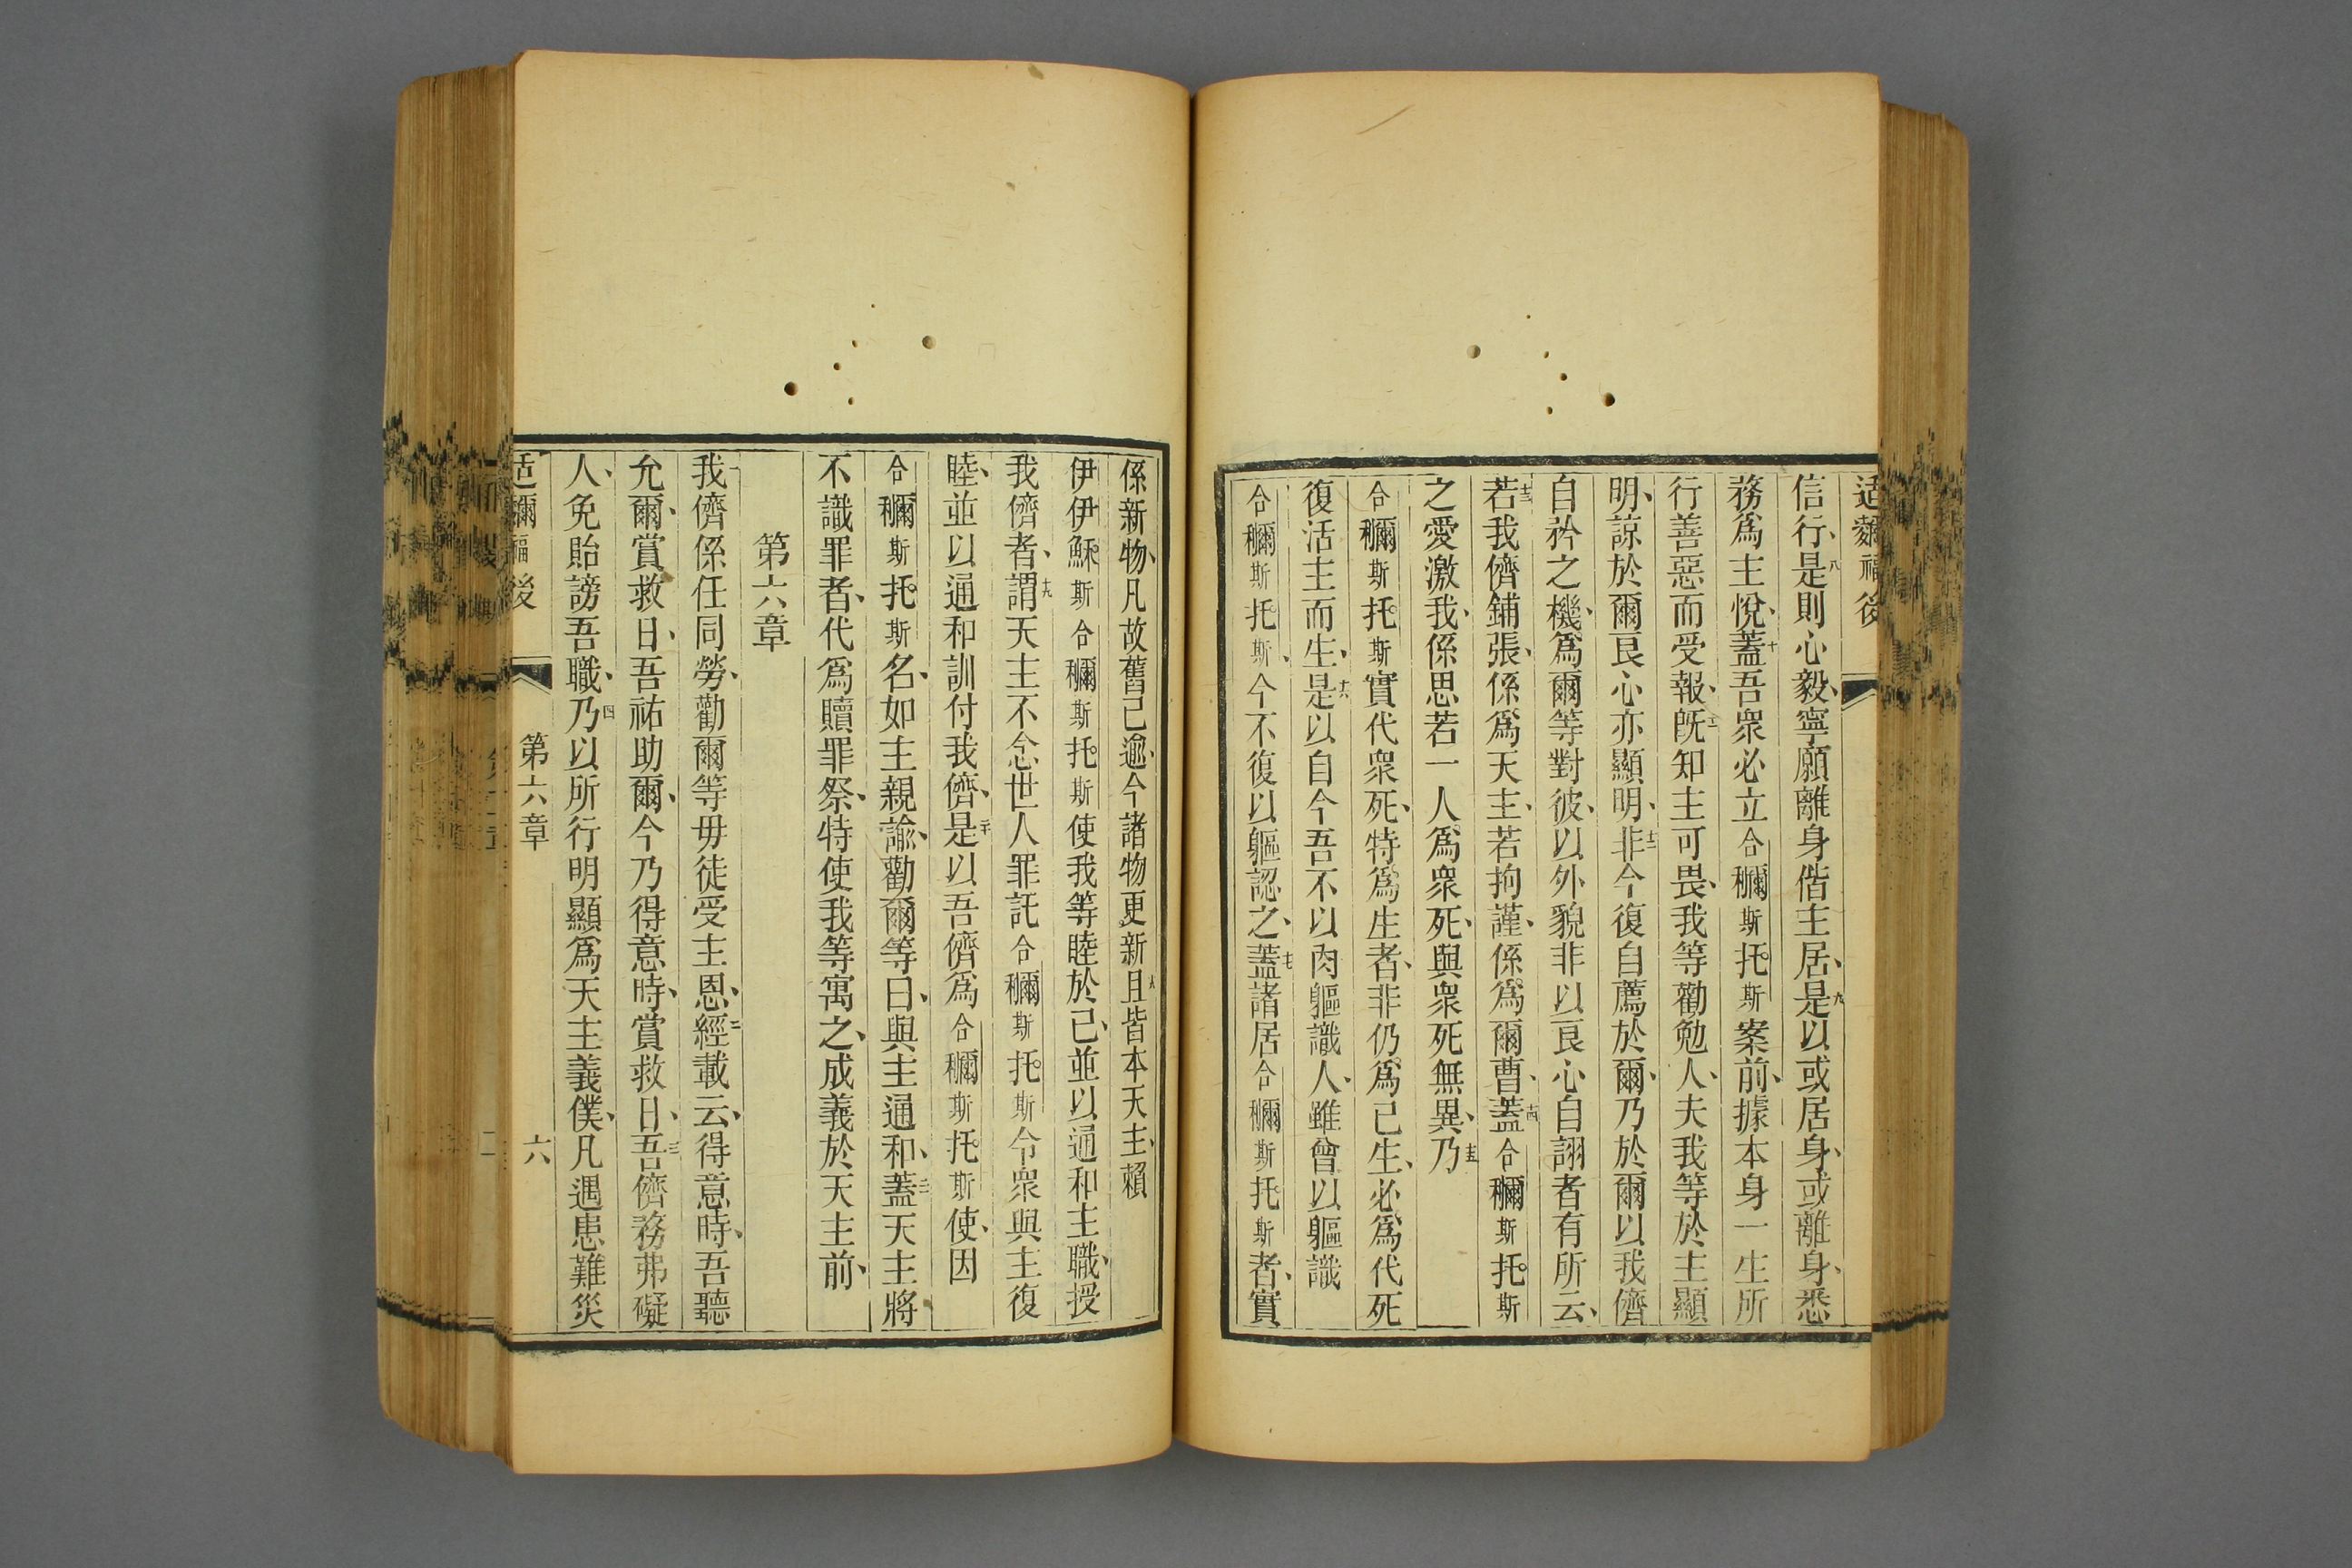 适
福後
信行、八是則心毅、寧願離身偕主居、九是以或居身、或離身、悉
務爲主悅、十蓋吾衆必立合穪斯托斯案前、據本身一生所
行善惡而受報、十一旣知主可畏、我等勸勉人、夫我等於主顯
明、諒於爾良心亦顯明、十二非今復自薦於爾、乃於爾以我儕
自矜之機、爲爾等對彼、以外貌非以良心自詡者有所云、
十三若我儕鋪張、係爲天主、若拘謹、係爲爾曹、十四蓋合穪斯托斯
之愛激我、係思若一人爲衆死、與衆死無異、十五乃
合穪斯托斯實代衆死、特爲生者、非仍爲己生、必爲代死
復活主而生、十六是以自今吾不以肉軀識人、雖曾以軀識
合穪斯托斯、今不復以軀認之、十七蓋諸居合穪斯托斯者、實
係新物、凡故舊已逾、今諸物更新、十八且皆本天主、賴
伊伊穌斯合穪斯托斯使我等睦於己、並以通和主職、授
我儕者、十九謂天主不念世人罪託合穪斯托斯令衆與主復
睦、並以通和訓付我儕、二十是以吾儕爲合穪斯托斯使、因
合穪斯托斯名、如主親諭、勸爾等曰、與主通和、二一蓋天主將
不識罪者、代爲贖罪祭、特使我等寓之、成義於天主前、
第六章
一我儕係任同勞、勸爾等毋徒受主恩、二經載云、得意時、吾聽
允爾、賞救日、吾祐助爾、今乃得意時、賞救日、三吾儕務弗礙
人、免貽謗吾職、四乃以所行明顯爲天主義僕、凡遇患難災
适穪福後 第六章 六